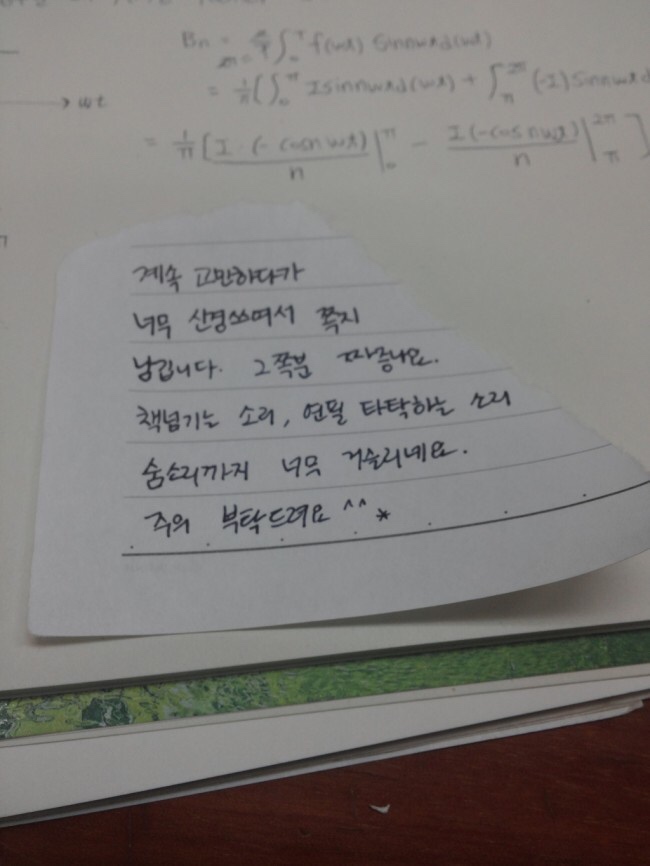 Bn = ∫ f(wt) sinnwtd(wt)
= 1/π (∫₀^π I sinnwtd(wt) + ∫_π^2π (-I) sinnwtd
→ wt
= 1/π [ I · (-cosnwt)/n |₀^π - I(-cosnwt)/n |_π^2π ]
계속 고민하다가
너무 신경쓰여서 쪽지
남깁니다. 그쪽분 짜증나요.
책넘기는 소리, 연필 타탁하는 소리
숨소리까지 너무 거슬리네요.
주의 부탁드려요 ^^ *